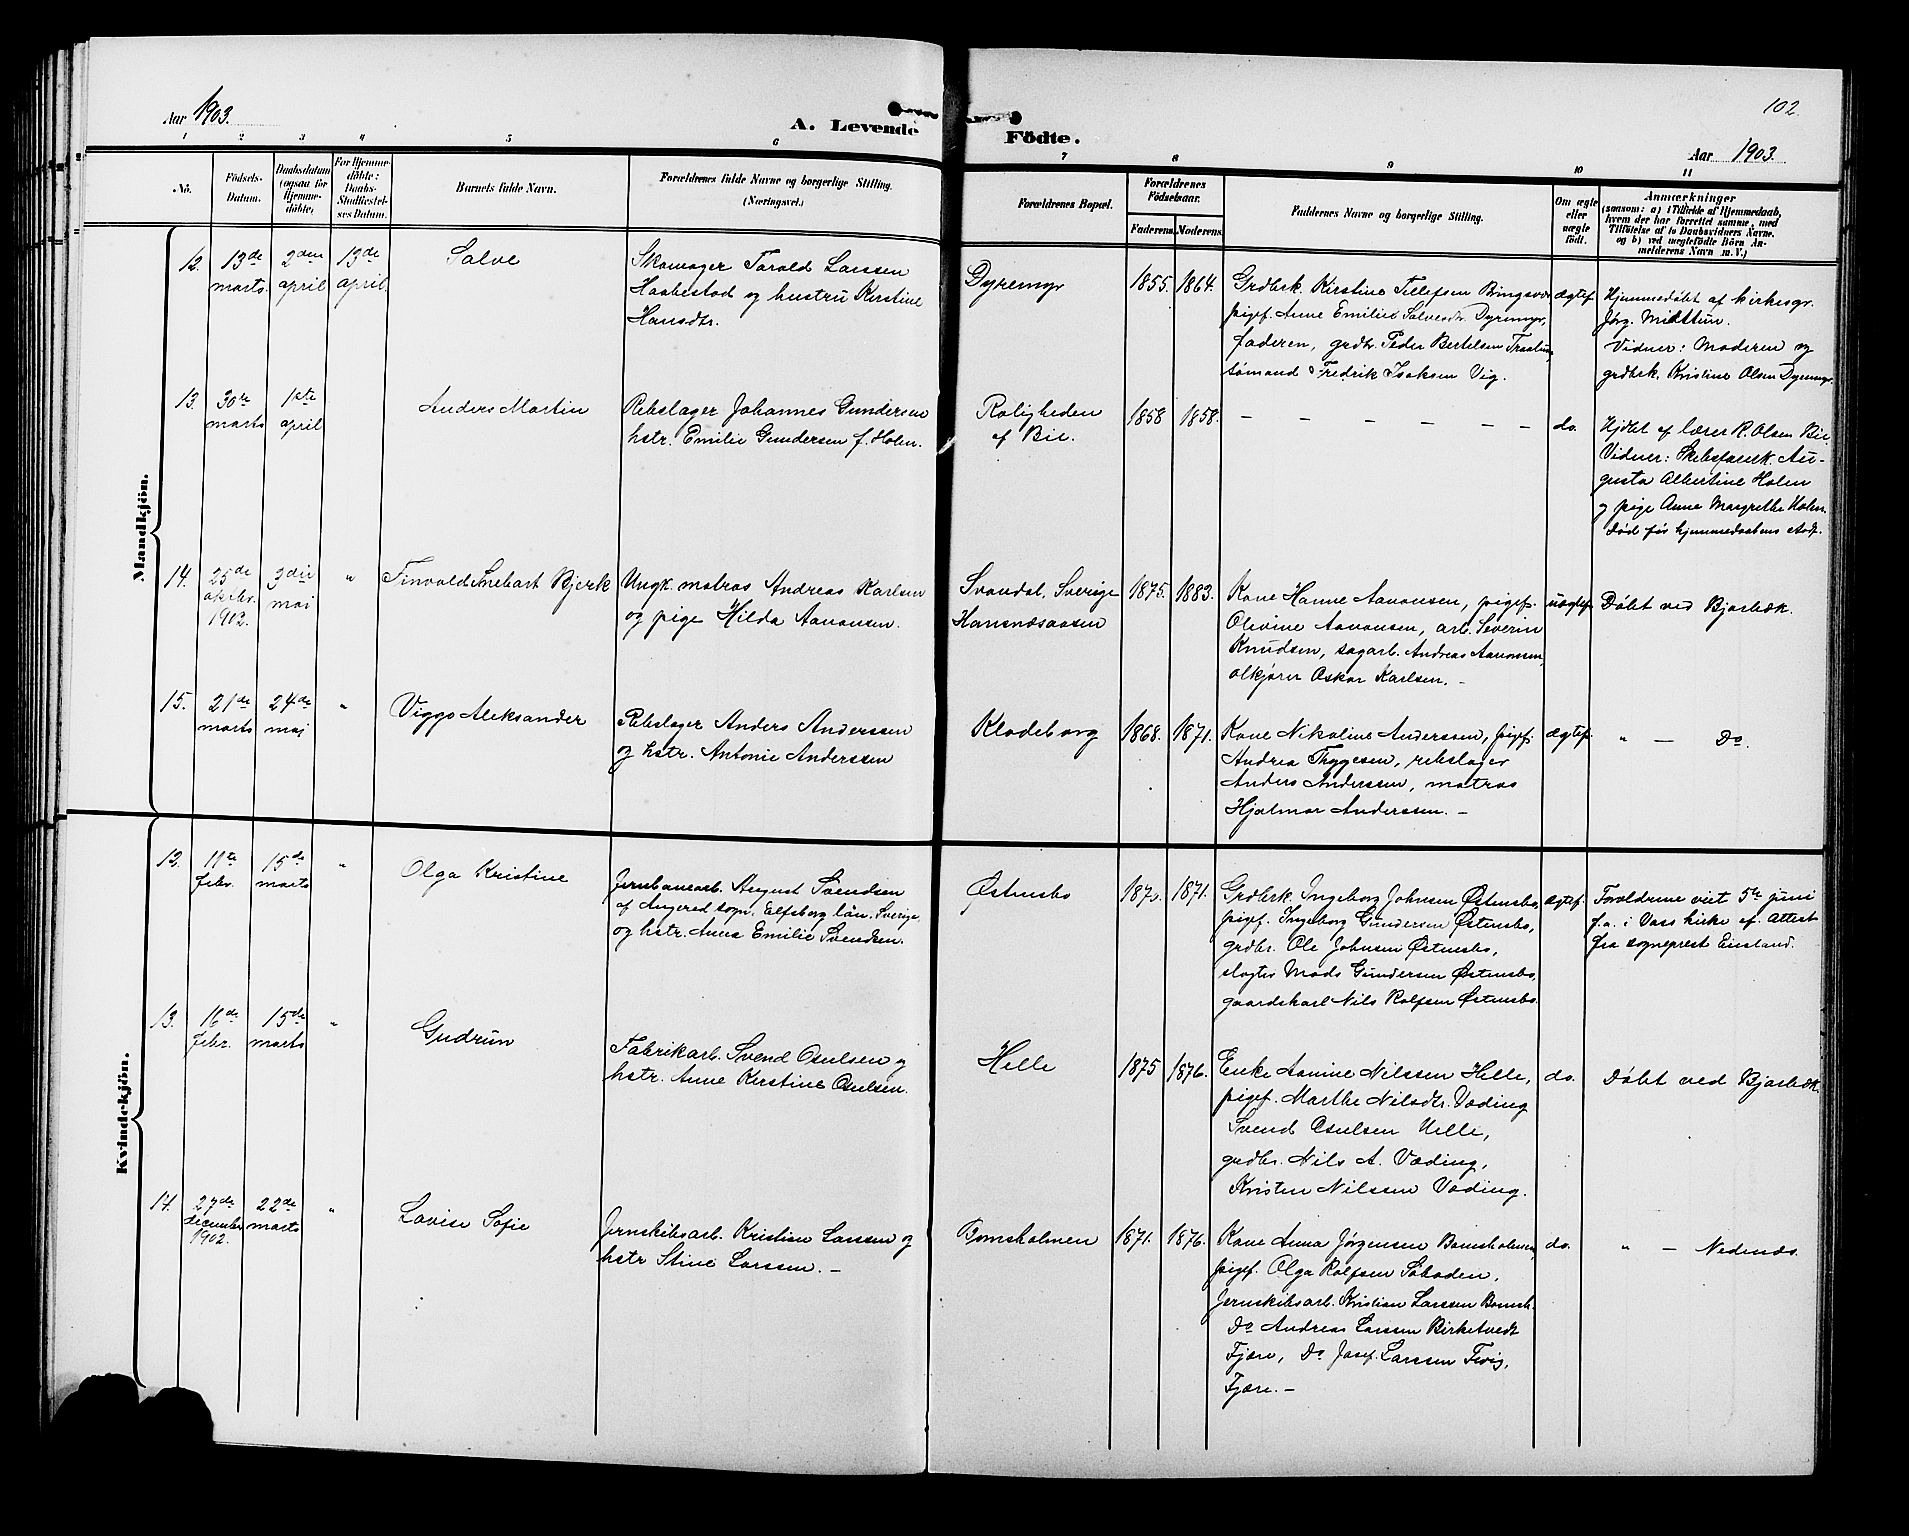 Aar 1903.
A. Levende Födte.
102.
Aar 1903.
1 2 3 4 5 6 7 8 9 10 11
No.
Födsels-
Datum.
Daabsdatum
(ogsaa for
Hjemme-
döbte)
For Hjemme-
döbte:
Daabs-
Stadfæstel-
ses Datum.
Barnets fulde Navn.
Forældrenes fulde Navne og borgerlige Stilling.
(Næringsvei.)
Forældrenes Bopæl.
Forældrenes
Födselsaar.
Faderens. Moderens.
Faddernes Navne og borgerlige Stilling.
Om ægte
eller
uægte
födt.
Anmærkninger
(saasom: a) i Tilfælde af Hjemmedaab,
hvem der har forrettet samme, med
Tilföielse af to Daabsvidners Navne,
og b) ved uegtefödte Börn An-
melderens Navn m. V.)
Mandkjön.
12.
13de
marts.
2den
april
13de
april.
Salve
Skomager Tarald Larssen
Haabestad og hustru Kirstine
Hansdtr.
Dyremyr
1855. 1864.
Grdbrk. Kirstine Tellefsen Bringsvor
pigef. Anne Emilie Salvesdtr. Dyremyr,
faderen, grdbr. Peder Bertelsen Traalum
sømand Fredrik Isaksen Vig.
ægtef.
Hjemmedøbt af kirkesgr.
Jørg. Midttun.
Vidner: Moderen og
grdbrk. Kristine Olsen Dyremyr.
13.
30te
marts
1ste
april
Anders Martin
Rebslager Johannes Gundersen
hstr. Emilie Gundersen f. Holen.
Roligheden
af Bie.
1858 1858.
– – – – – –
do.
Hjdbt af lærer R. Olsen Bie.
Vidner: Skibsførerk. Au-
gusta Albertine Holen
og pige Anne Margrethe Holen.
Død før hjemmedaabens stadf.
14.
25de
oktbr.
1902.
3die
mai
"
Finvald Snebart Bjerk
Ungk. matros Andreas Karlsen
og pige Hilda Aanonsen.
Svandal, Sverige
Hansnæsaasen
1875. 1883.
Kone Hanne Aanonsen, pigef.
Olevine Aanonsen, arb. Severin
Knudsen, sagarb. Andreas Aanonsen,
ølkjører Oskar Karlsen. –
uægtef.
Døbt ved Bjorbæk.
15.
21de
marts
24de
mai
"
Viggo Aleksander
Rebslager Anders Anderssen
og hstr. Antonie Anderssen
Klodeborg
1868. 1871.
Kone Nikoline Anderssen, pigef.
Andrea Thygesen, rebslager
Anders Anderssen, matros
Hjalmar Anderssen. –
ægtef.
" – Do.
Kvindekjön.
12.
11te
febr.
15de
marts
"
Olga Kristine
Jernbanearb. August Svendsen
af Angered sogn, Elfsborg län, Sverige,
og hstr. Anna Emilie Svendsen.
Østensbo
1871.
Grdbrk. Ingeborg Johnsen Østensbo,
pigef. Ingeborg Gundersen Østensbo,
grdbr. Ole Johnsen Østensbo,
slagter Mads Gundersen Østensbo,
gaardskarl Nils Rolfsen Østensbo.
ægtef.
Foreldrene viet 5te juni
f.a. i Vass kirke ef. attest
fra sogneprest
13.
16de
febr.
15de
marts
"
Gudrun
Fabrikarb. Svend Osulsen og
hstr. Anne Kirstine Osulsen.
Helle
1875 1876.
Enke Aanine Nilssen Helle,
pigef. Marthe Nilsdtr. Vading
Svend Osulsen Helle,
grdbr. Nils A. Vading,
Kristen Nilssen Vading.
do.
Døbt ved Bjorbæk.
14.
27de
december
1902.
22de
marts
"
Lovise Sofie
Jernskibsarb. Kristian Larssen og
hstr Stine Larssen. –
Bomsholmen
1871. 1876.
Kone Anna Jørgensen Bomsholmen,
pigef. Olga Rolfsen Saboden,
Jernskibsarb. Kristian Larssen Bomsh.
Do Andreas Larssen Birketvedt
Fjære, Do Josef Larssen Fevig,
Fjære. –
do.
" – Nedenæs.